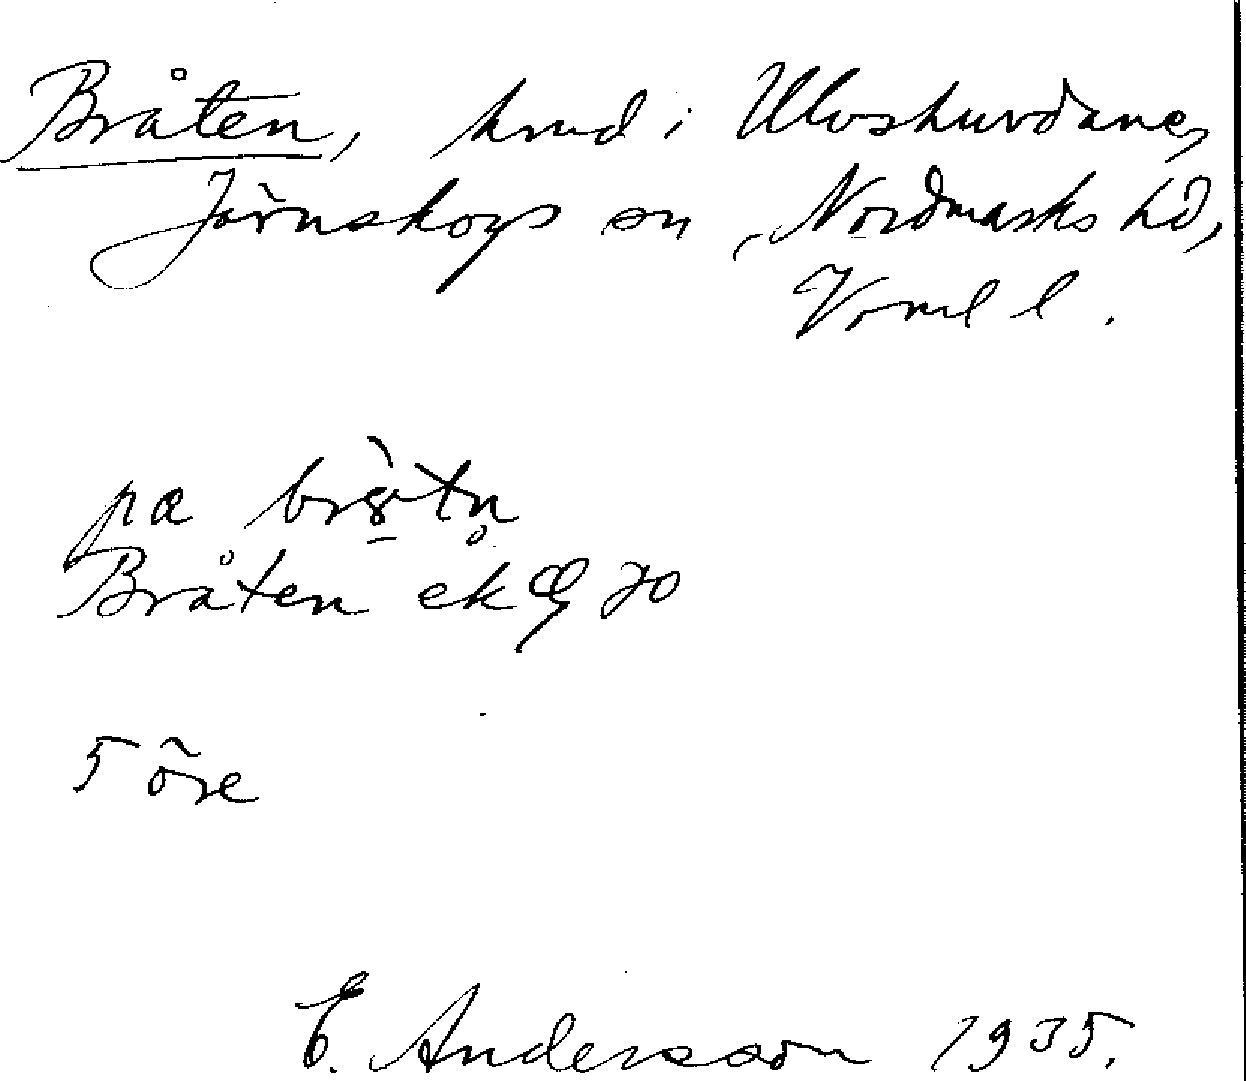 Bråten, hmd i Ulvshuvdane,
Järnskogs sn, Nordmarks hd,
Vrml l.
pa
Bråten ek 70
5 öre
E. Andersson 1935.